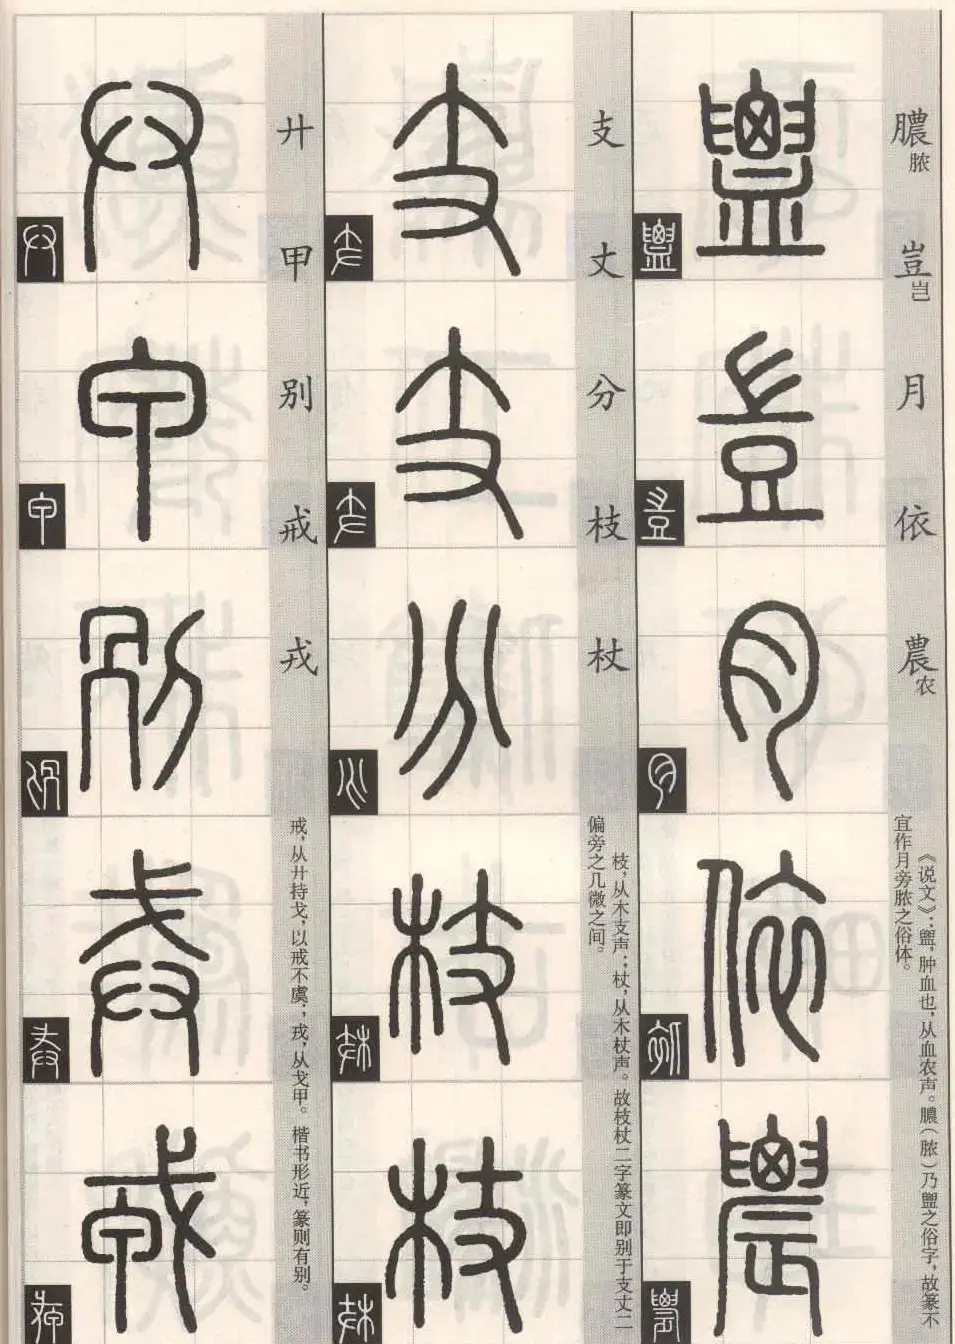 膿脓 豈岂 月 依 農农
《说文》：盥，肿血也，从血农声。膿（脓）乃盥之俗字，故篆不
宜作月旁脓之俗体。
支 丈 分 枝 杖
枝，从木支声；杖，从木杖声。故枝杖二字篆文即别于支丈二
偏旁之几微之间。
廾 甲 别 戒 戎
戒，从廾持戈，以戒不虞；戎，从戈甲。楷书形近，篆则有别。